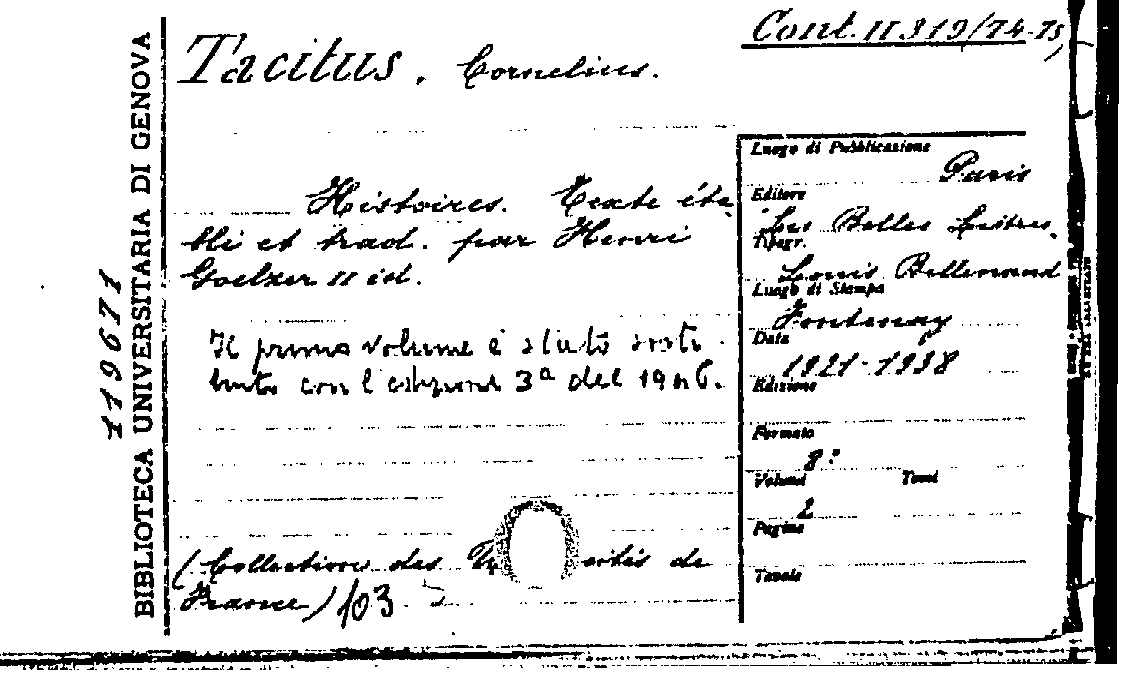 Cont. II 319/74-75
Tacitus, Cornelius.
Histoires. Texte éta-
bli et trad. par Henri
Goelzer II éd.
Il primo volume è stato sosti-
tuito con l'edizione 3ª del 1946.
(Collection des Universités de
France) 103
Luogo di Pubblicazione
Paris
Editore
Les Belles Lettres
Tipogr.
Louis Bellenand
Luogo di Stampa
Fontenay
Data
1921-1938
Edizione
Formato
8°
Volumi Tomi
2
Pagine
Tavole
BIBLIOTECA UNIVERSITARIA DI GENOVA
119671